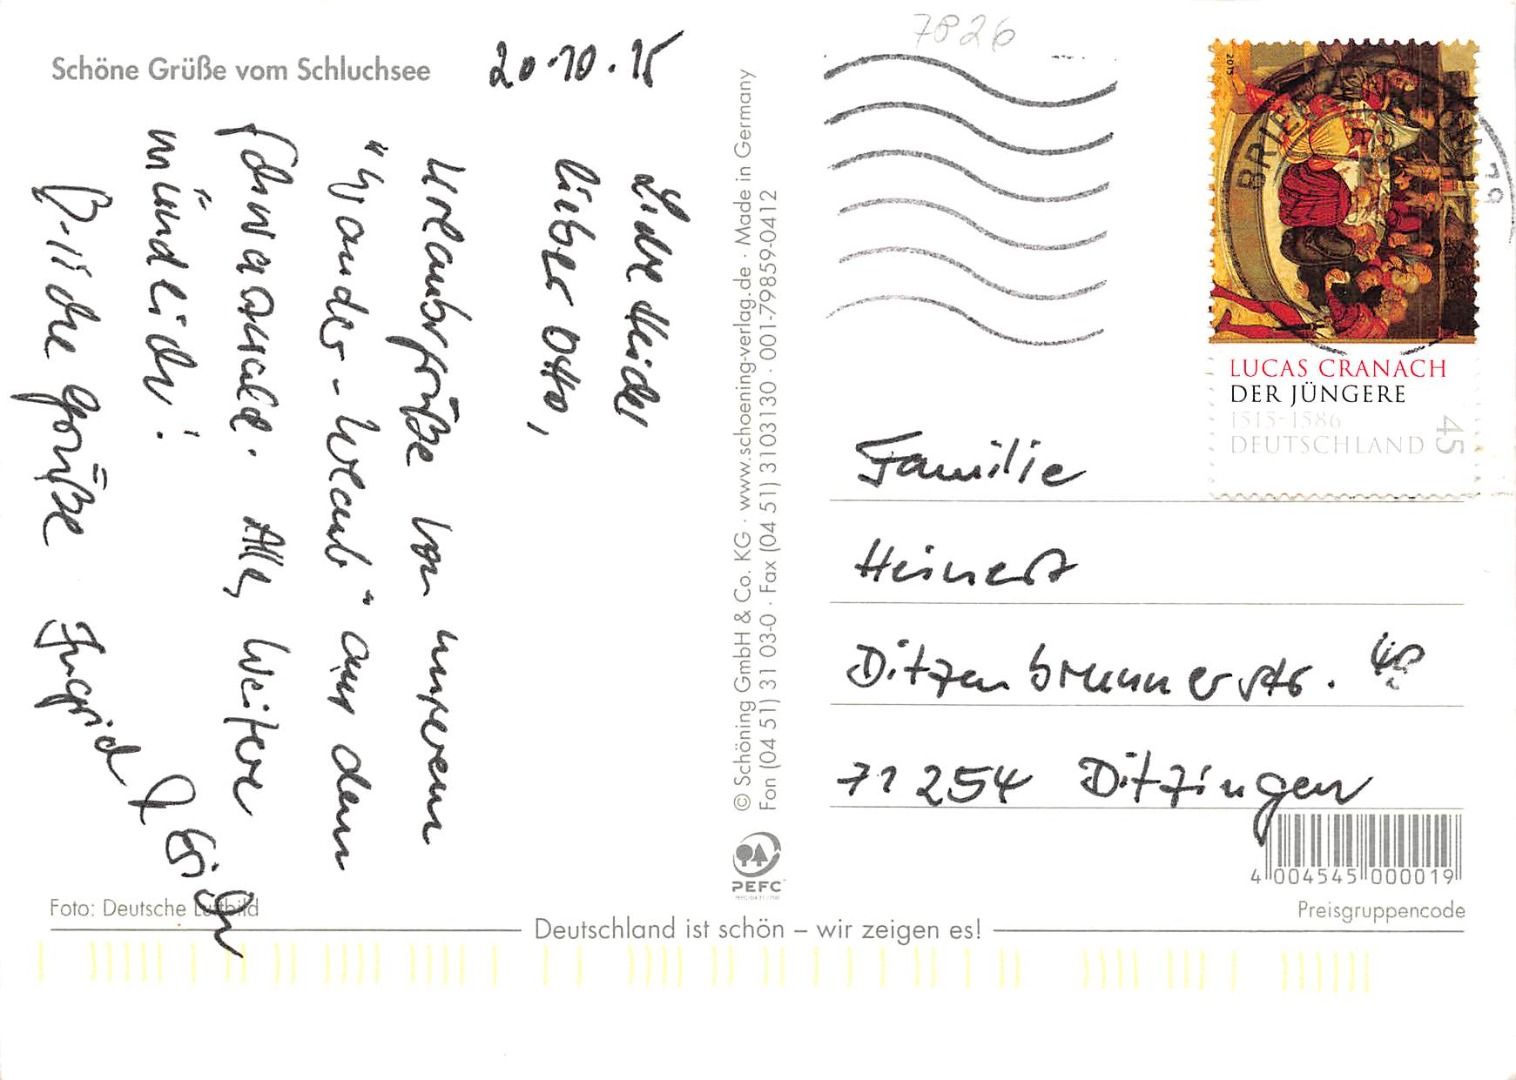 Schöne Grüße vom Schluchsee
20.10.15
Liebe Heide,
lieber Otto,
Urlaubsgrüße von unserem
"Wander-Urlaub" aus dem
Schwarzwald. Alles Weitere
mündlich!
Grüße Ingrid &
© Schöning GmbH & Co. KG · www.schoening-verlag.de · Made in Germany
Fon (04 51) 31 03-0 · Fax (04 51) 3103130 · 001-79859-0412
PEFC
7826
BRIEF
2015
LUCAS CRANACH
DER JÜNGERE
1515-1586
DEUTSCHLAND
45
Familie
Heinert
Ditzenbrunnerstr.
71254 Ditzingen
4 004545 000019
Preisgruppencode
Foto: Deutsche Luftbild
Deutschland ist schön – wir zeigen es!